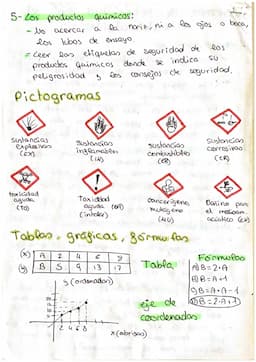 5- Los productos químicos:
- No acercar a la nariz, ni a los ojos o boca,
los tubos de ensayo.
- Leer las etiquetas de seguridad de los
productos químicos donde se indica su
peligrosidad y los consejos de seguridad.
Pictogramas
Sustancias
explosivas
(EX)
Sustancias
inflamables
Sustancias
comburentes
Sustancias
corrosivas
(CR)
toxicidad
aguda
(TO)
Toxicidad
aguda
Cancerígeno,
mutágeno
Dañino para
el medioam.
acuático
Tablas, gráficas, fórmulas
(x) A 2 4 6 8
(y) B 5 9 13 17
Tabla
Fórmulas
A) B=2·A
B=A+1
B=A·A-1
D) B=2·A+1
y (ordenadas)
2 4 6 8
x (abcisas)
eje de
coordenadas